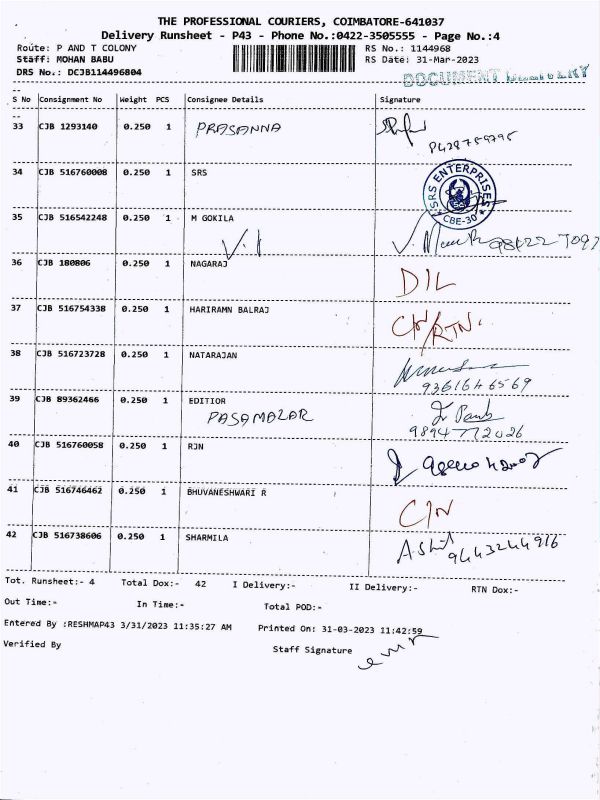 THE PROFESSIONAL COURIERS, COIMBATORE-641037
Delivery Runsheet - P43 - Phone No.:0422-3505555 - Page No.:4
Route: P AND T COLONY RS No.: 1144968
Staff: MOHAN BABU RS Date: 31-Mar-2023
DRS No.: DCJB114496804 DOCUMENT DELIVERY
S No Consignment No Weight PCS Consignee Details Signature
33 CJB 1293140 0.250 1 PRASANNA
34 CJB 516760008 0.250 1 SRS SRS ENTERPRISES CBE-30
35 CJB 516542248 0.250 1 M GOKILA
36 CJB 180806 0.250 1 NAGARAJ D/L
37 CJB 516754338 0.250 1 HARIRAMN BALRAJ RTN.
38 CJB 516723728 0.250 1 NATARAJAN
9361646569
39 CJB 89362466 0.250 1 EDITIOR
PASAMALAR 9894772026
40 CJB 516760058 0.250 1 RJN
41 CJB 516746462 0.250 1 BHUVANESHWARI R C/N
42 CJB 516738606 0.250 1 SHARMILA 9443244916
Tot. Runsheet:- 4 Total Dox:- 42 I Delivery:- II Delivery:- RTN Dox:-
Out Time:- In Time:- Total POD:-
Entered By :RESHMAP43 3/31/2023 11:35:27 AM Printed On: 31-03-2023 11:42:59
Verified By Staff Signature